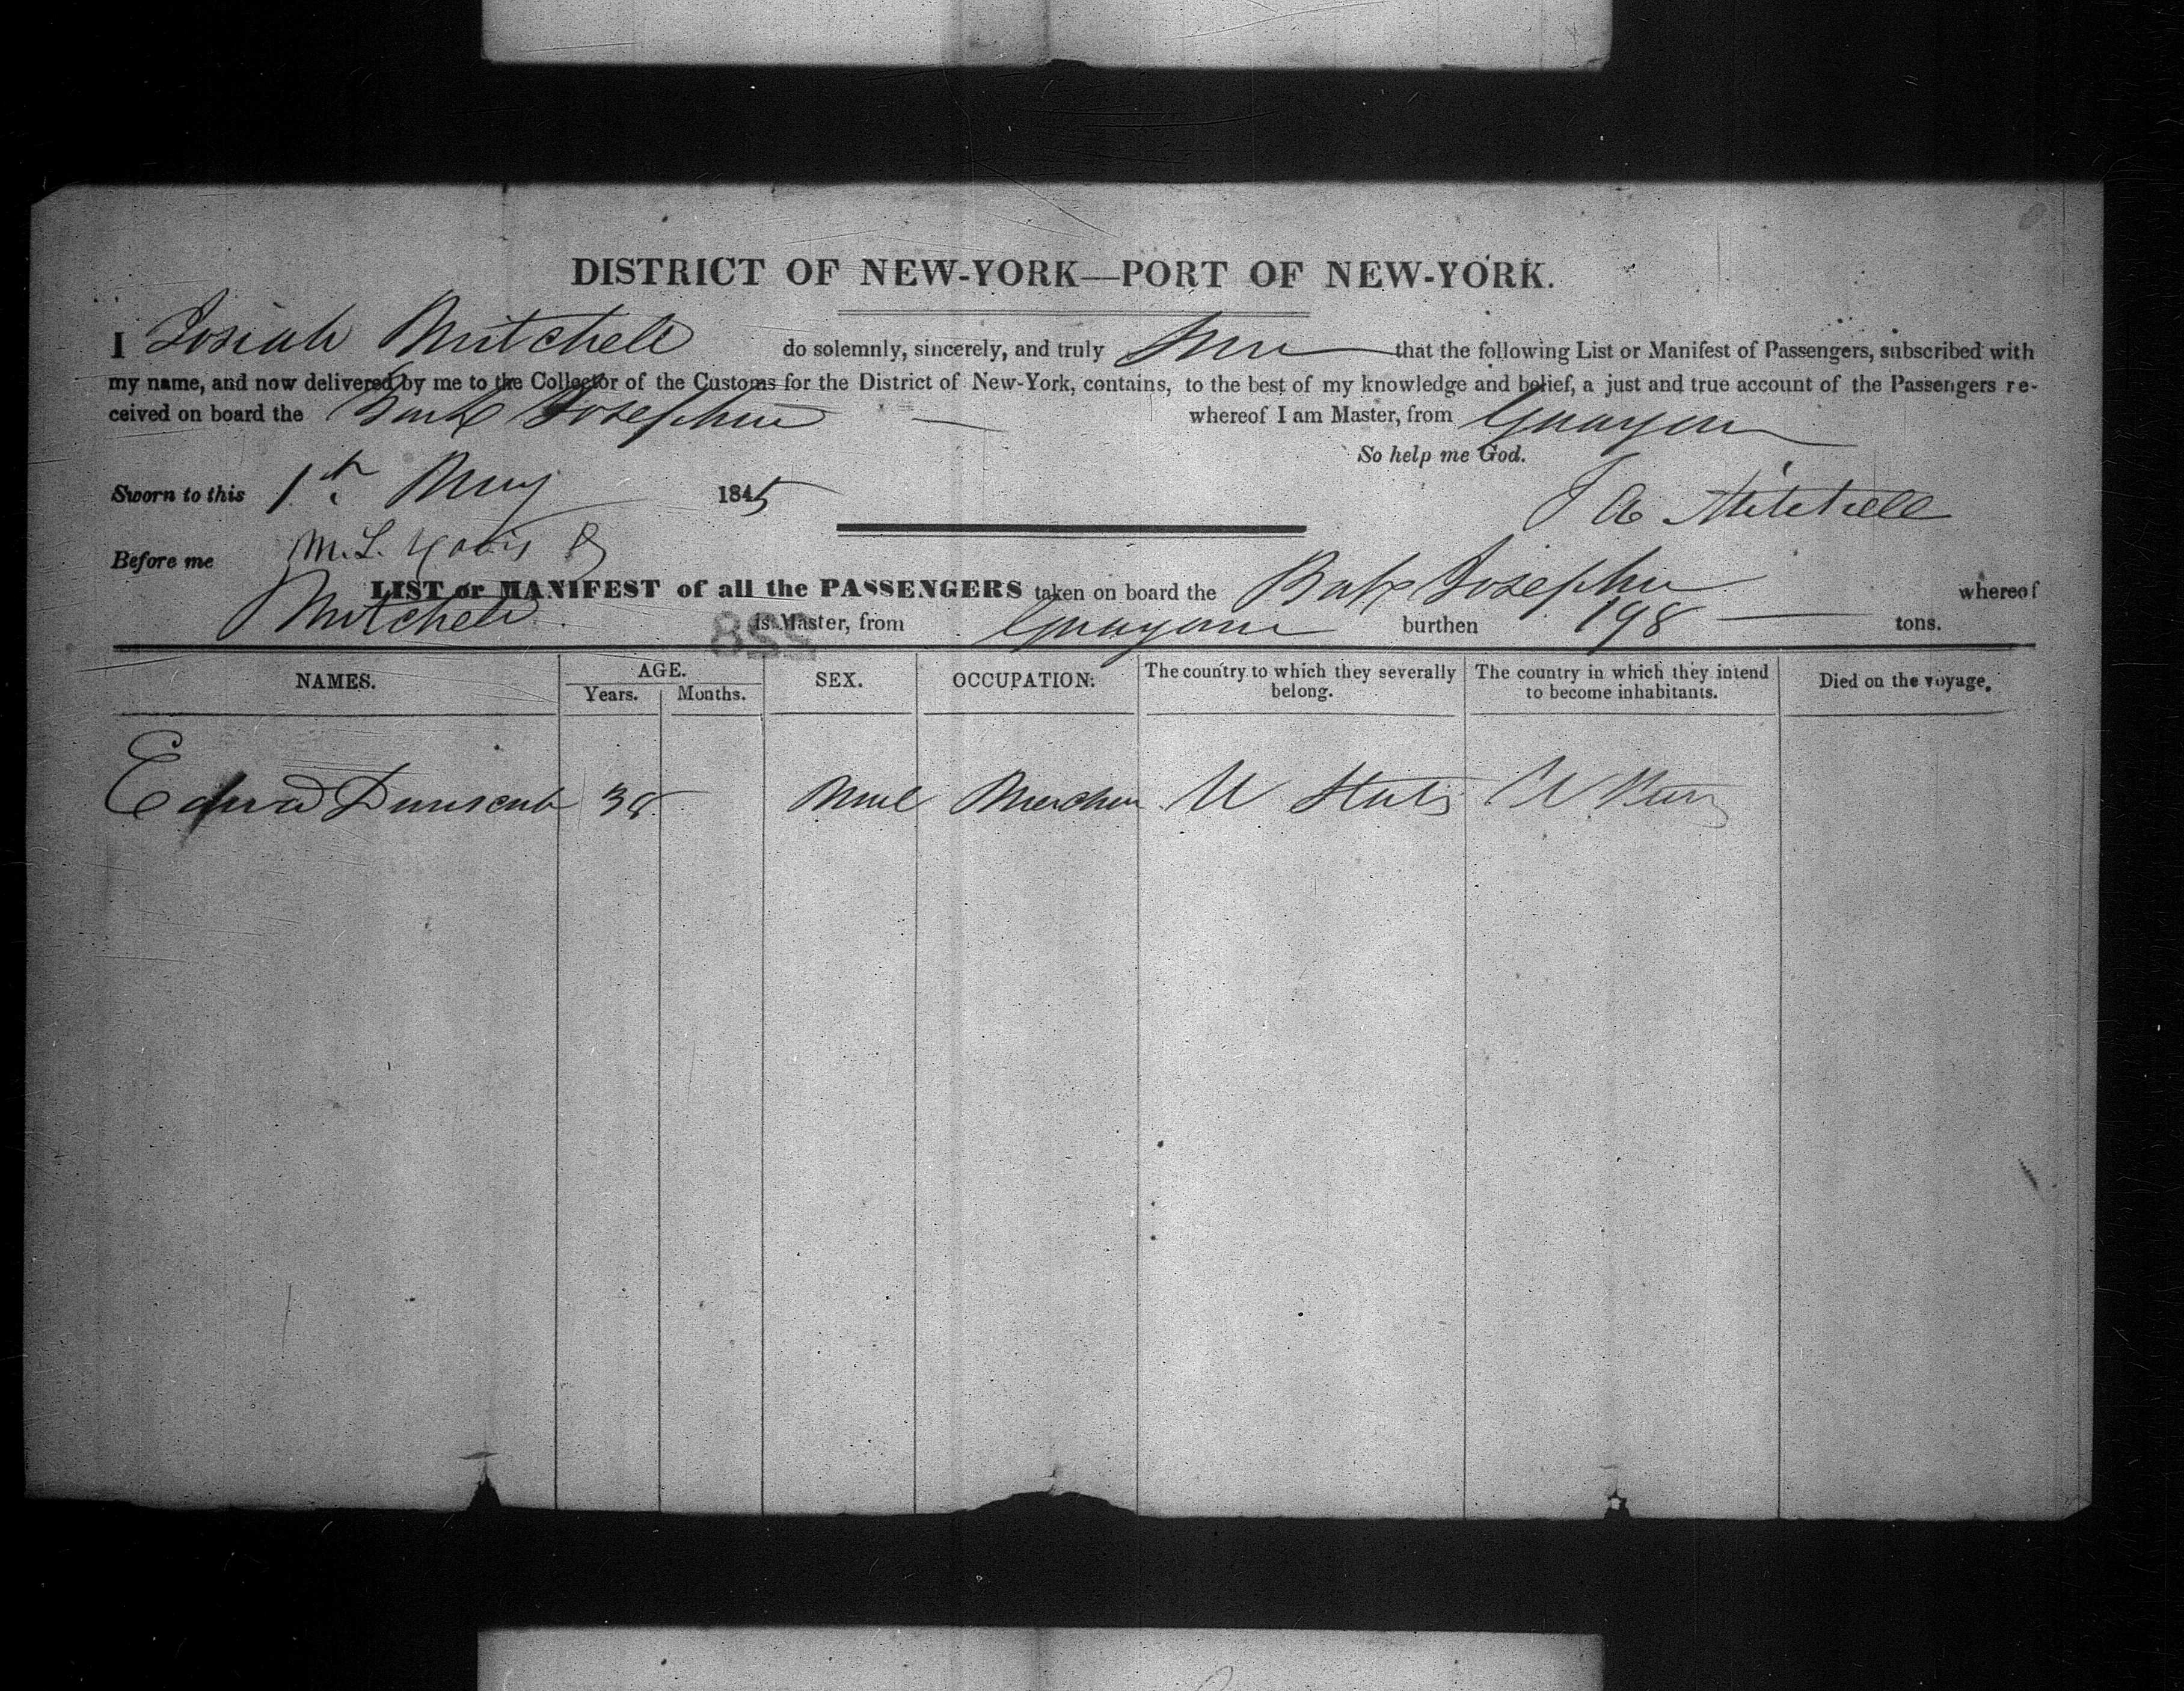 DISTRICT OF NEW-YORK—PORT OF NEW-YORK.
I Josiah Mitchell do solemnly, sincerely, and truly that the following List or Manifest of Passengers, subscribed with
my name, and now delivered by me to the Collector of the Customs for the District of New-York, contains, to the best of my knowledge and belief, a just and true account of the Passengers re-
ceived on board the Bark Josephine whereof I am Master, from Guayama
So help me God.
Sworn to this 1st May 1845
J A Mitchell
Before me M. L.
LIST or MANIFEST of all the PASSENGERS taken on board the Bark Josephine whereof
Mitchell is Master, from Guayama burthen 198 tons.
NAMES. AGE. SEX. OCCUPATION. The country to which they severally belong. The country in which they intend to become inhabitants. Died on the voyage.
Years. Months.
Edward 38 Male Merchan U States